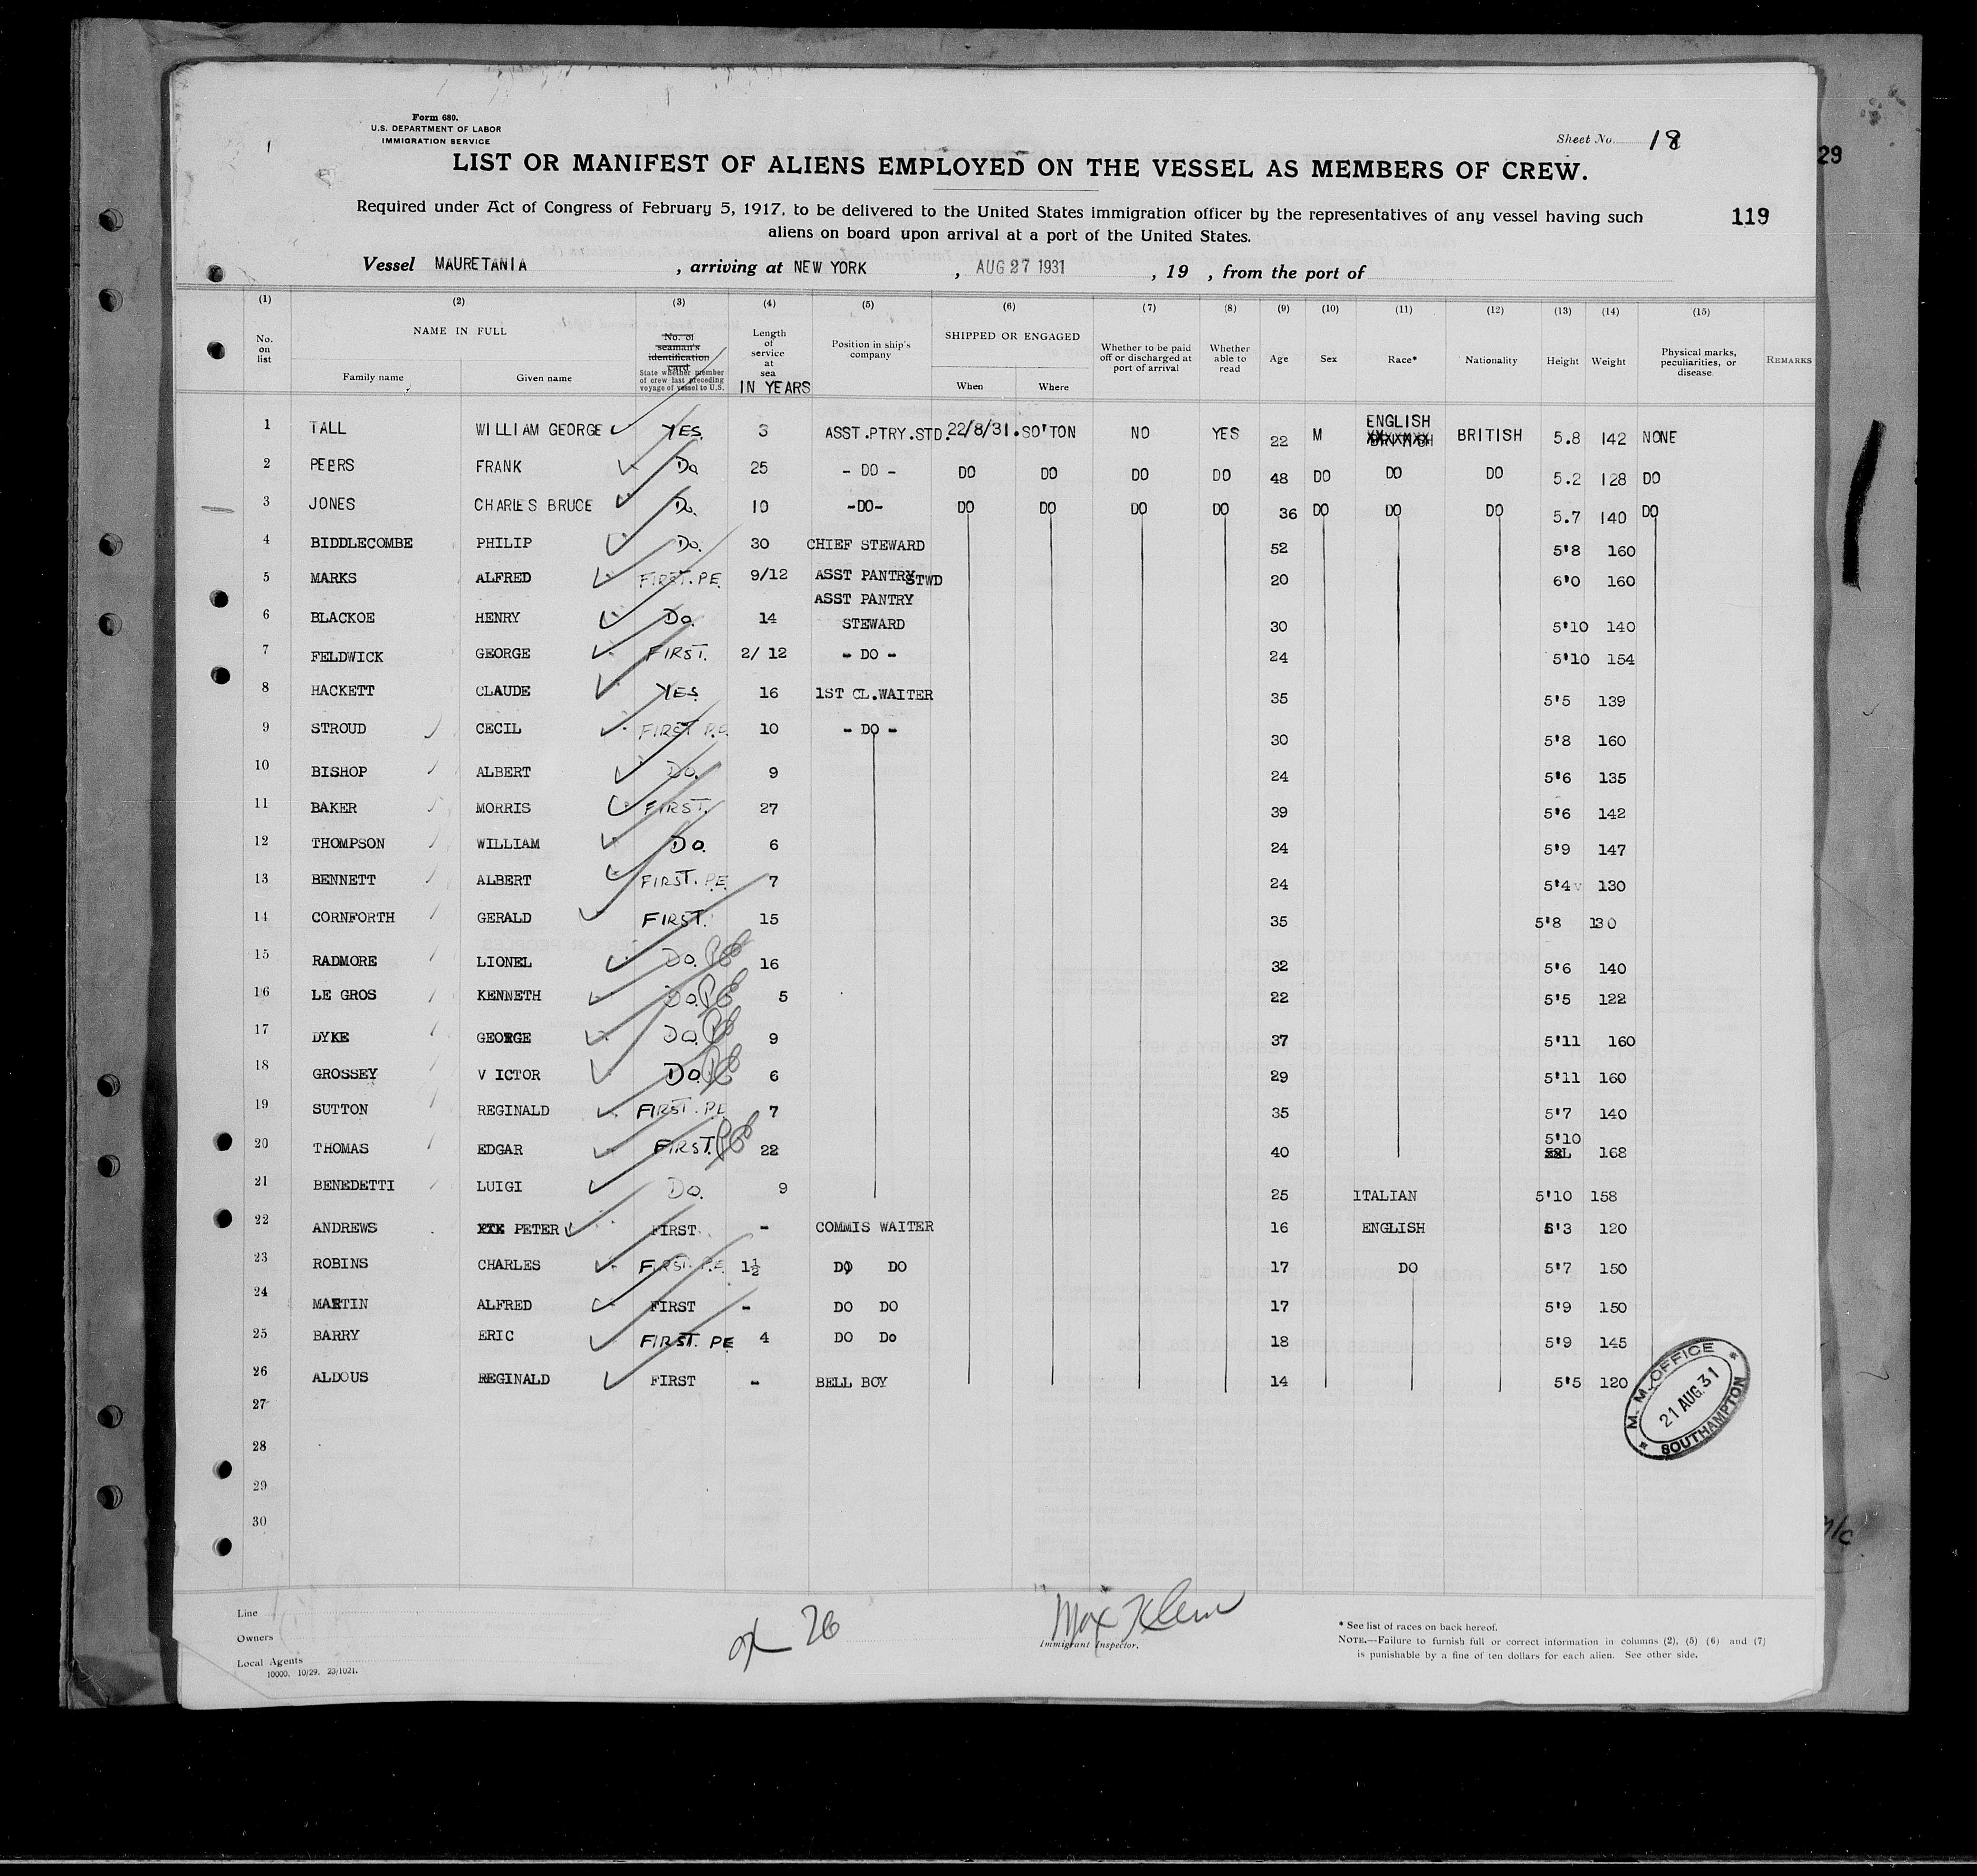 Form 680.
U.S. DEPARTMENT OF LABOR
IMMIGRATION SERVICE
Sheet No. 18
29
LIST OR MANIFEST OF ALIENS EMPLOYED ON THE VESSEL AS MEMBERS OF CREW.
Required under Act of Congress of February 5, 1917, to be delivered to the United States immigration officer by the representatives of any vessel having such
aliens on board upon arrival at a port of the United States.
119
Vessel MAURETANIA, arriving at NEW YORK, AUG 27 1931, 19 , from the port of
(1) (2) (3) (4) (5) (6) (7) (8) (9) (10) (11) (12) (13) (14) (15)
No. on list NAME IN FULL Family name Given name No. of seaman's identification card State whether member of crew last preceding voyage of vessel to U.S. Length of service at sea IN YEARS Position in ship's company SHIPPED OR ENGAGED When Where Whether to be paid off or discharged at port of arrival Whether able to read Age Sex Race* Nationality Height Weight Physical marks, peculiarities, or disease REMARKS
1 TALL WILLIAM GEORGE YES. 3 ASST.PTRY.STD. 22/8/31. SO'TON NO YES 22 M ENGLISH BRITISH 5.8 142 NONE
2 PEERS FRANK Do 25 - DO - DO DO DO DO 48 DO DO DO 5.2 128 DO
3 JONES CHARLES BRUCE Do. 10 -DO- DO DO DO DO 36 DO DO DO 5.7 140 DO
4 BIDDLECOMBE PHILIP Do. 30 CHIEF STEWARD 52 5'8 160
5 MARKS ALFRED FIRST. PE 9/12 ASST PANTRY STWD 20 6'0 160
6 BLACKOE HENRY Do. 14 ASST PANTRY STEWARD 30 5'10 140
7 FELDWICK GEORGE FIRST. 2/ 12 - DO - 24 5'10 154
8 HACKETT CLAUDE YES 16 1ST CL.WAITER 35 5'5 139
9 STROUD CECIL FIRST P.E. 10 - DO - 30 5'8 160
10 BISHOP ALBERT Do. 9 24 5'6 135
11 BAKER MORRIS FIRST. 27 39 5'6 142
12 THOMPSON WILLIAM Do. 6 24 5'9 147
13 BENNETT ALBERT FIRST. P.E. 7 24 5'4 130
14 CORNFORTH GERALD FIRST. 15 35 5'8 130
15 RADMORE LIONEL Do. PE 16 32 5'6 140
16 LE GROS KENNETH Do. PE 5 22 5'5 122
17 DYKE GEORGE Do. PE 9 37 5'11 160
18 GROSSEY VICTOR Do. PE 6 29 5'11 160
19 SUTTON REGINALD FIRST. PE 7 35 5'7 140
20 THOMAS EDGAR FIRST. PE 22 40 5'10 168
21 BENEDETTI LUIGI Do. 9 25 ITALIAN 5'10 158
22 ANDREWS PETER FIRST. - COMMIS WAITER 16 ENGLISH 5'3 120
23 ROBINS CHARLES FIRST. P.E. 1½ DO DO 17 DO 5'7 150
24 MARTIN ALFRED FIRST - DO DO 17 5'9 150
25 BARRY ERIC FIRST. PE 4 DO Do 18 5'9 145
26 ALDOUS REGINALD FIRST - BELL BOY 14 5'5 120
27
28
29
30
M. M. OFFICE
21 AUG. 31
SOUTHAMPTON
Line
Owners
Local Agents
10000. 10/29. 23/1021.
26
Max Klein
Immigrant Inspector.
* See list of races on back hereof.
NOTE.—Failure to furnish full or correct information in columns (2), (5) (6) and (7)
is punishable by a fine of ten dollars for each alien. See other side.